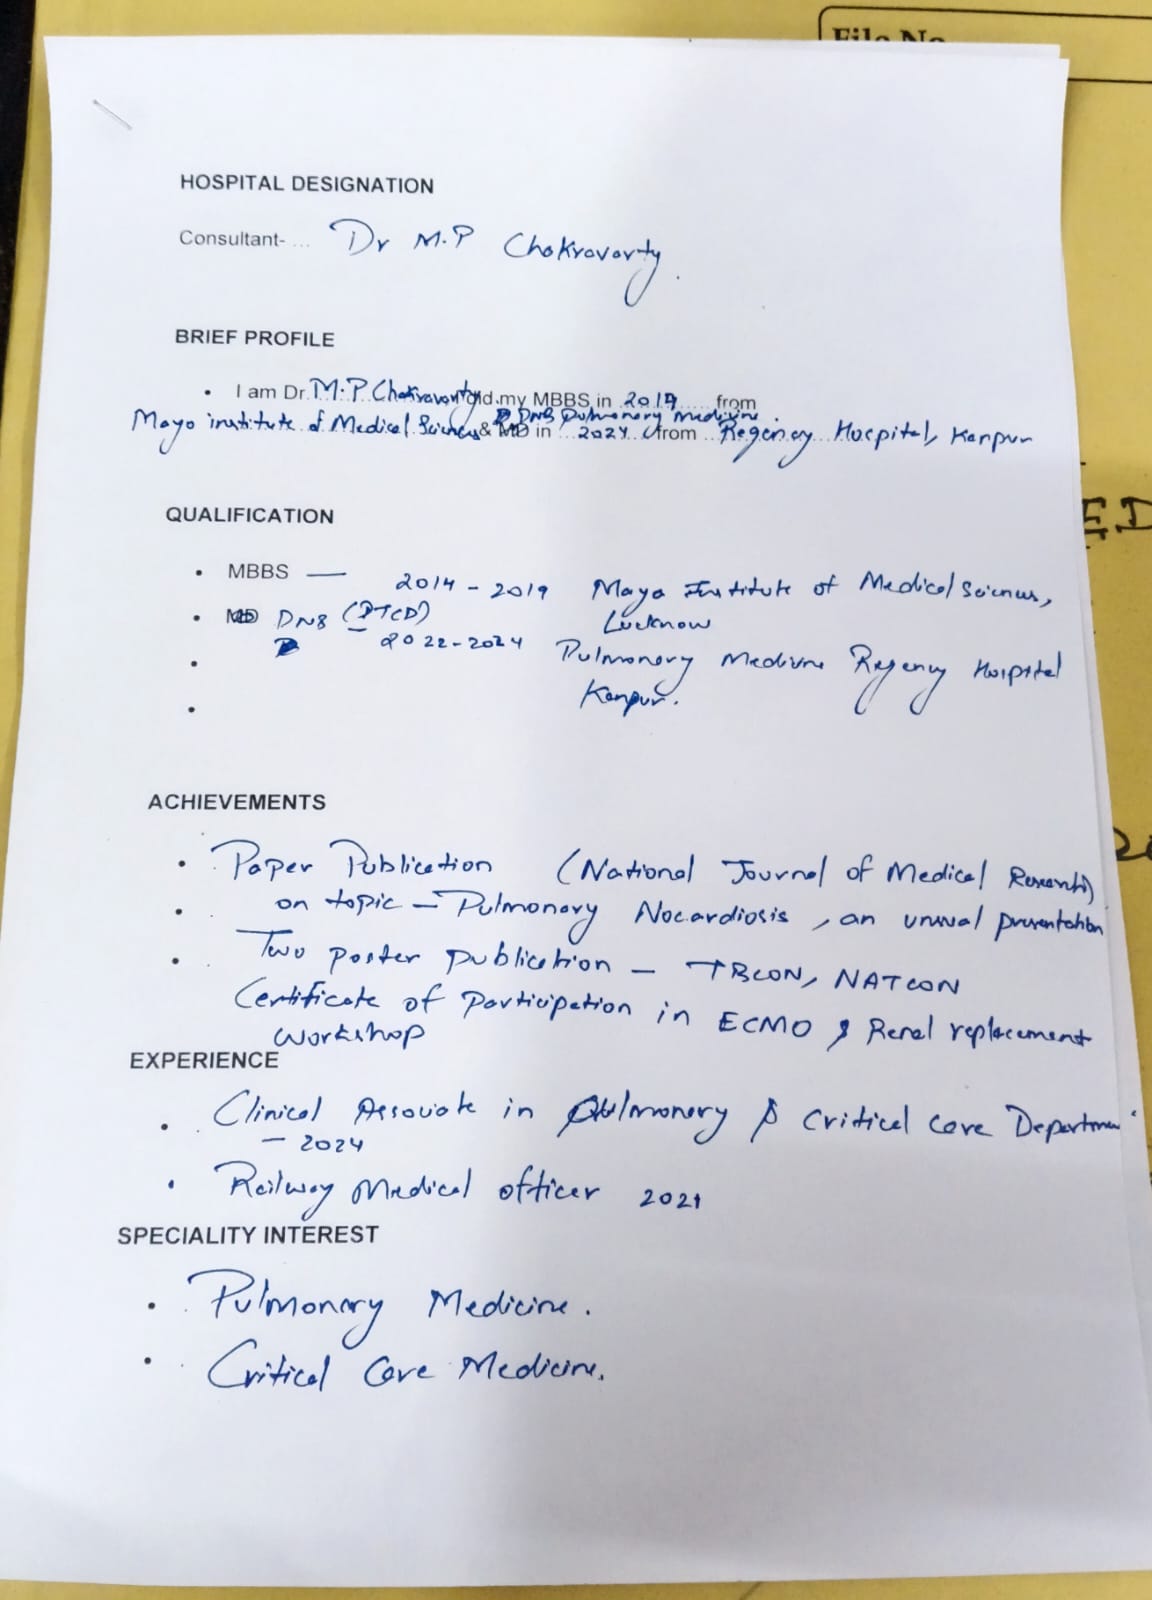 File No
HOSPITAL DESIGNATION
Consultant- ... Dr M.P Chakravarty
BRIEF PROFILE
• I am Dr. M.P Chakravarty did my MBBS in 2019 from
Mayo institute of Medical Sciences & DNB Pulmonary medicine in 2024 from Regency Hospital, Kanpur
QUALIFICATION
• MBBS — 2014 - 2019 Mayo Institute of Medical Sciences,
Lucknow
• DNB (DTCD)
2022-2024 Pulmonary Medicine Regency Hospital
Kanpur.
ACHIEVEMENTS
• Paper Publication (National Journal of Medical Research)
• on topic - Pulmonary Nocardiosis, an unusual presentation
• Two poster publication - TBCON, NATCON
Certificate of Participation in ECMO & Renal replacement
workshop
EXPERIENCE
• Clinical Associate in Pulmonary & Critical Care Departmen
- 2024
• Railway Medical officer 2021
SPECIALITY INTEREST
• Pulmonary Medicine.
• Critical Care Medicine.
ED